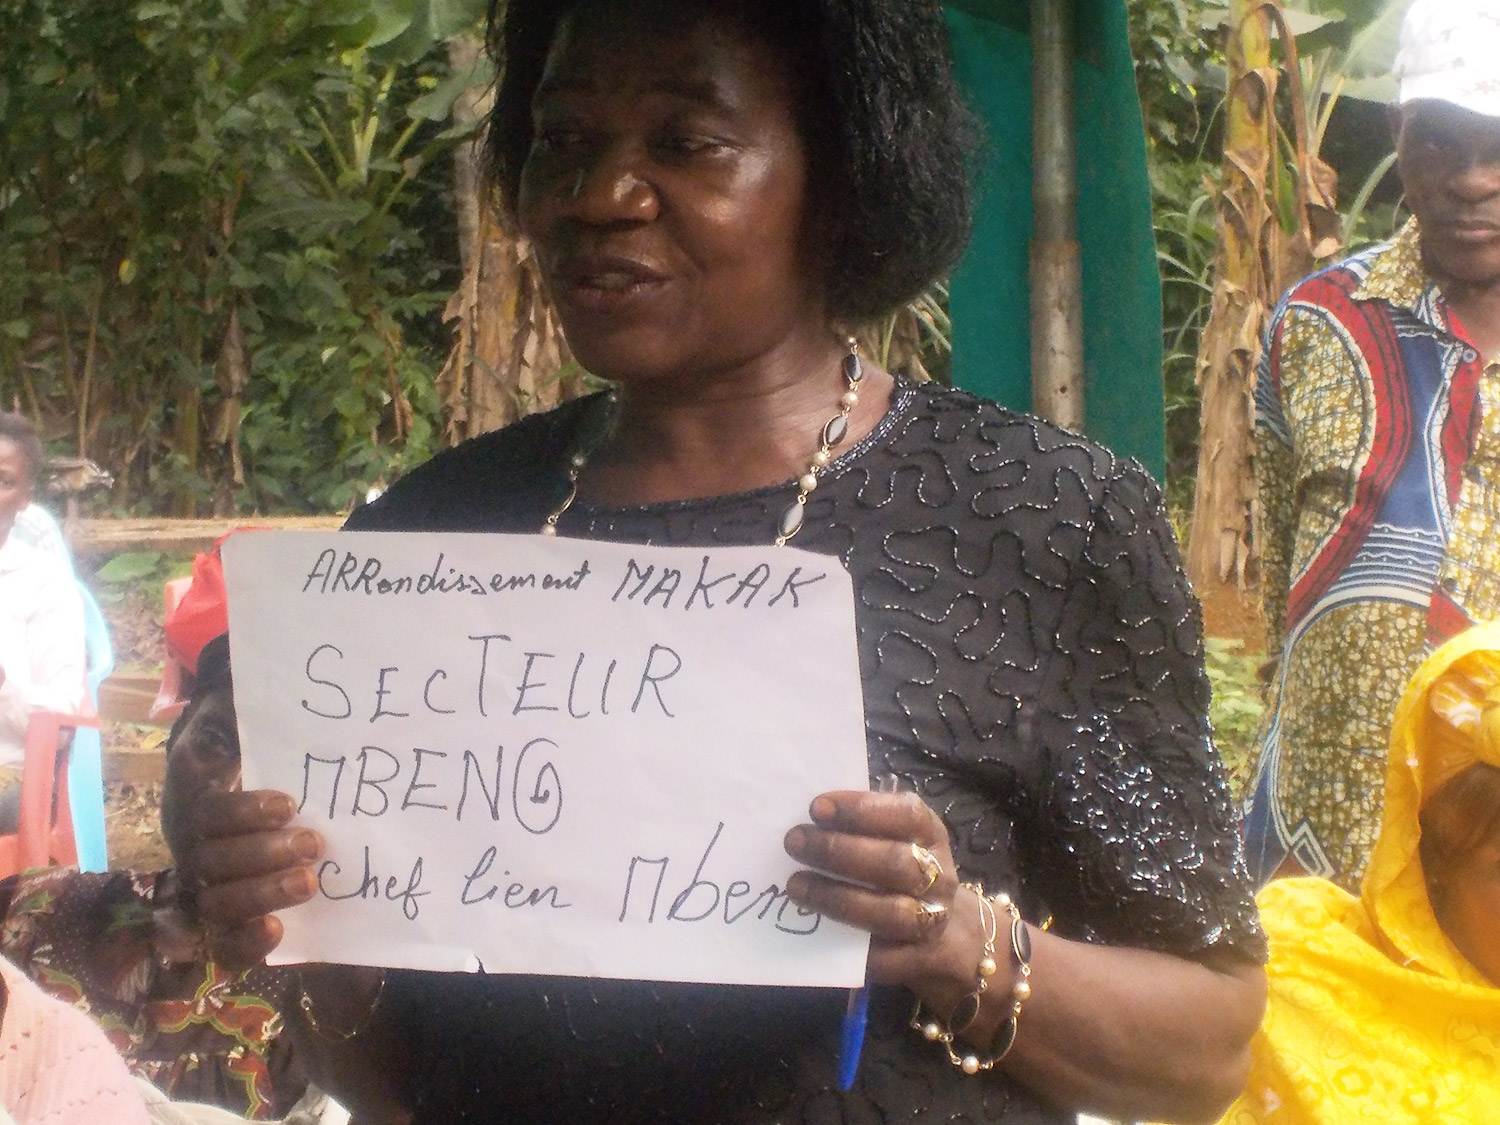 ARRondissement MAKAK
SECTEUR
MBENG
chef lien Mbeng